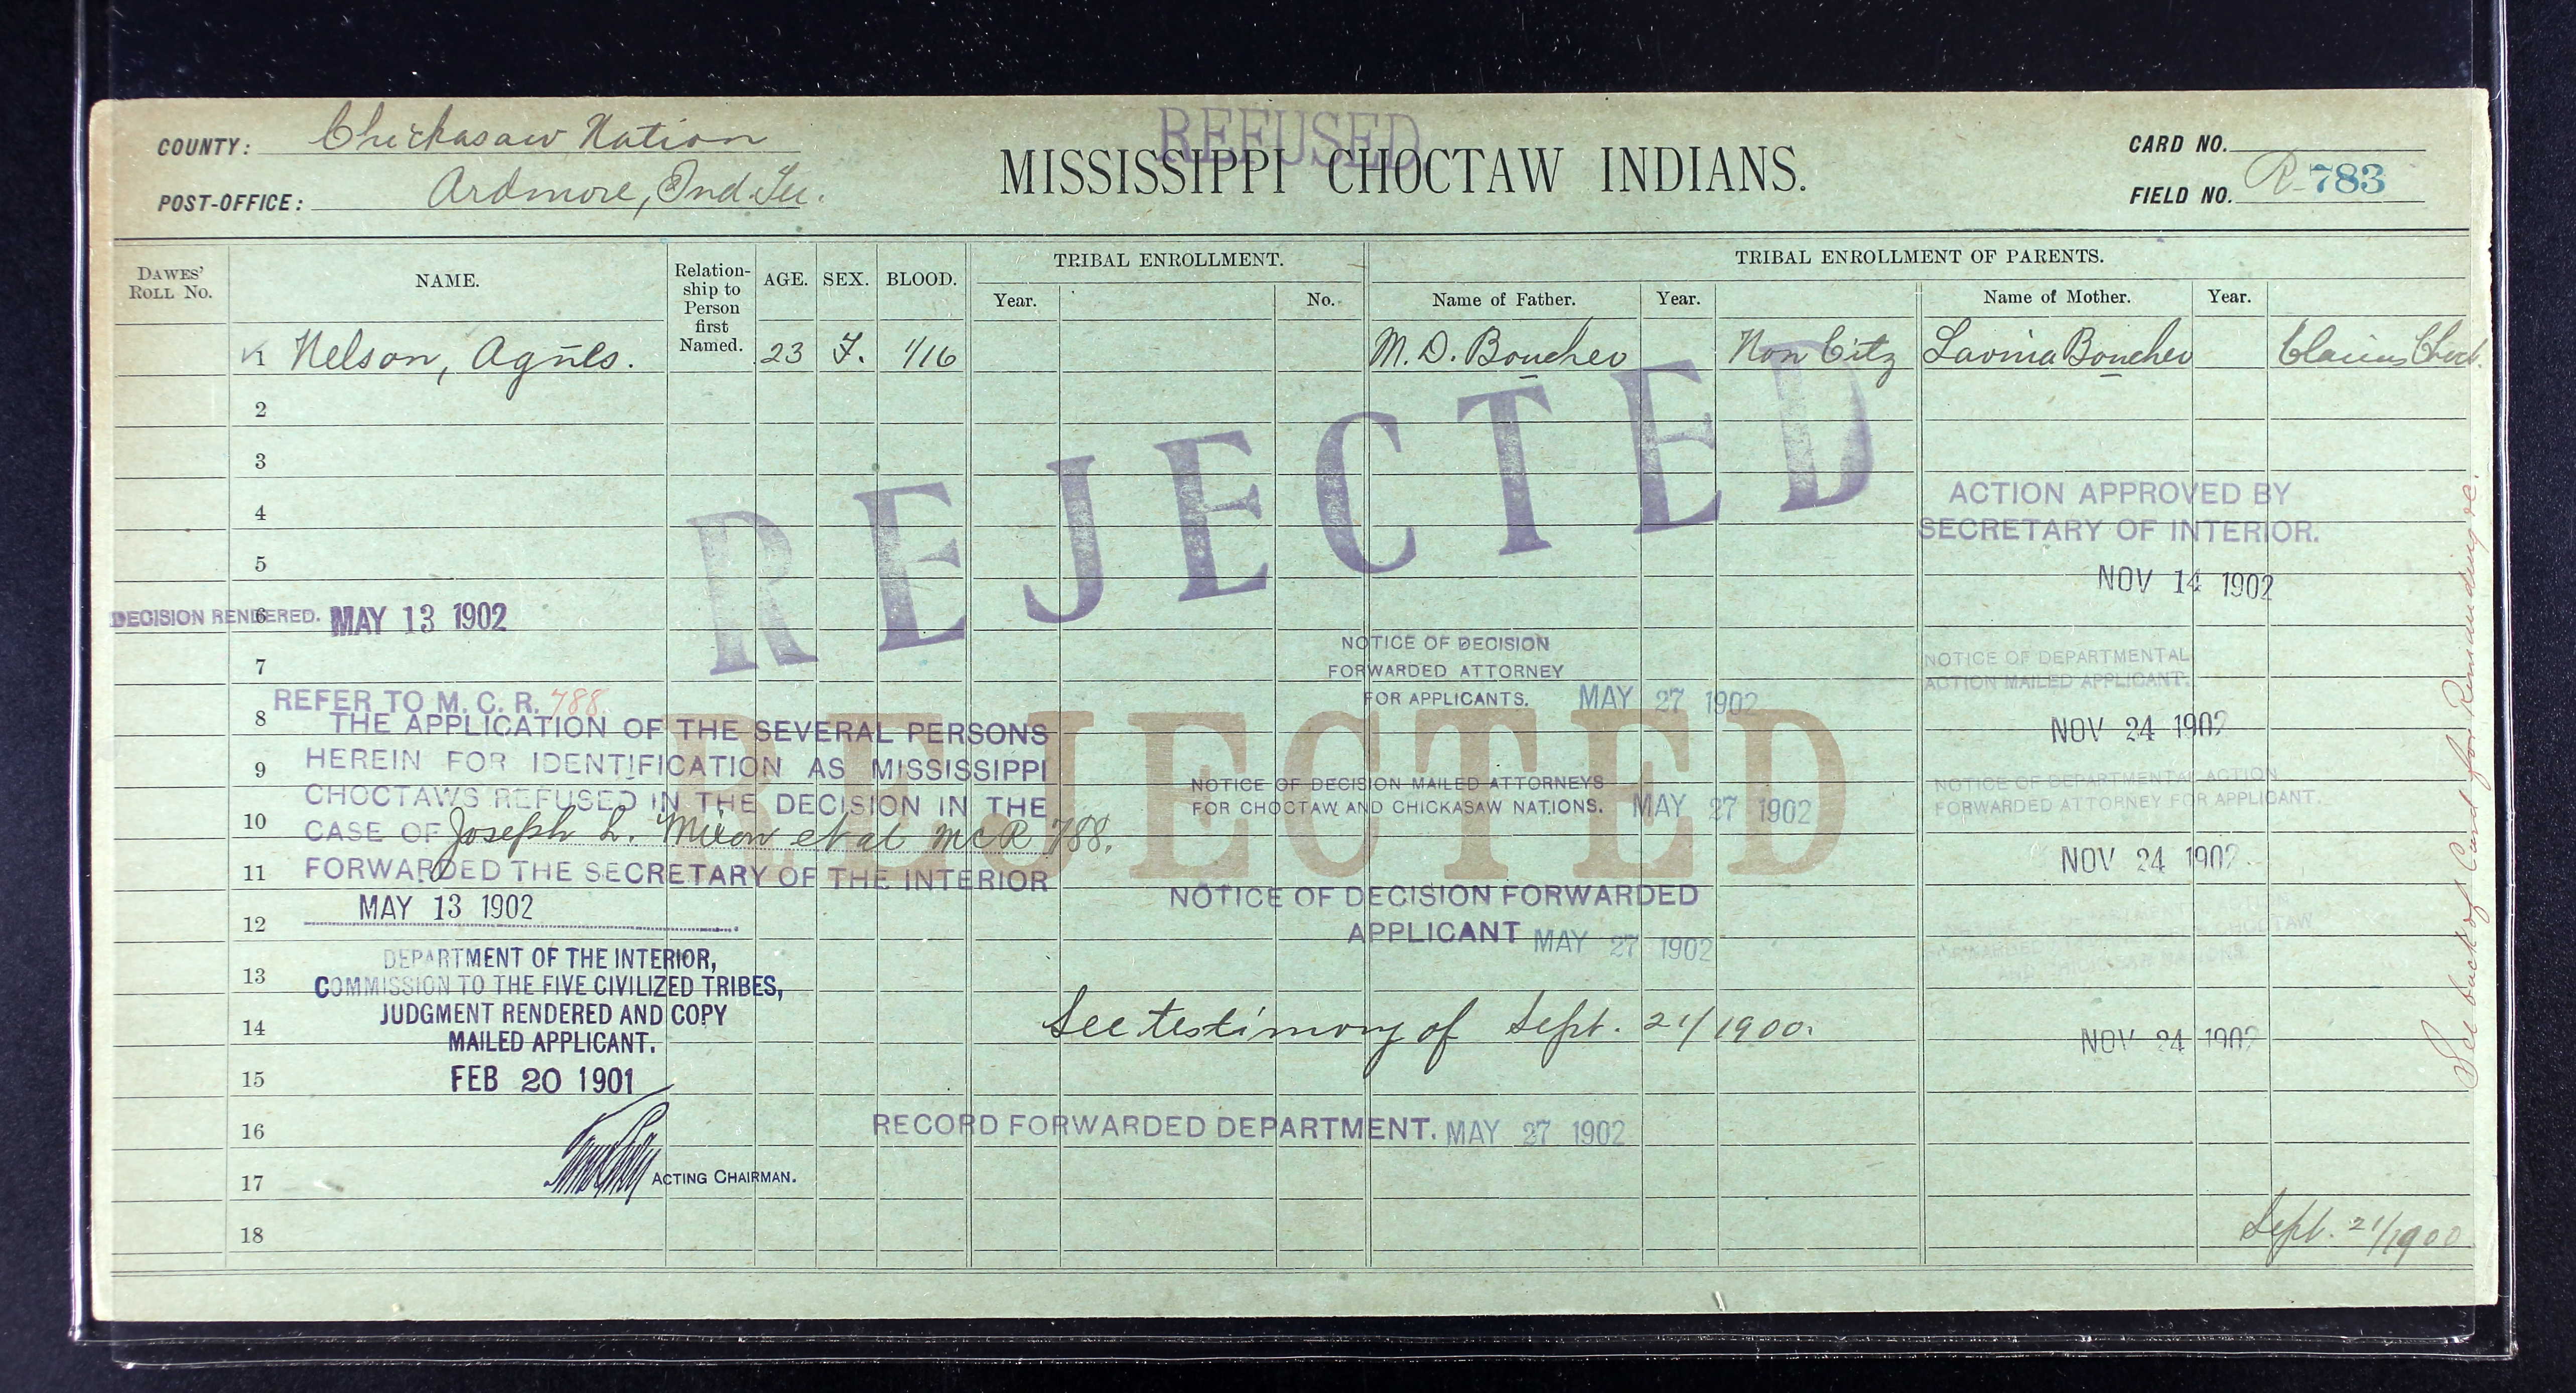 REFUSED
COUNTY: Chickasaw Nation
POST-OFFICE: Ardmore, Ind. Ter.
MISSISSIPPI CHOCTAW INDIANS.
CARD NO.
FIELD NO. R-783
DAWES' ROLL No.
NAME.
Relation-ship to Person first Named.
AGE.
SEX.
BLOOD.
TRIBAL ENROLLMENT.
Year.
No.
TRIBAL ENROLLMENT OF PARENTS.
Name of Father.
Year.
Name of Mother.
Year.
1 Nelson, Agnes. 23 F. 1/16 M. D. Boucher Non Citz Lavina Boucher Claims Choct.
2
3
4
5
6
7
8
9
10
11
12
13
14
15
16
17
18
REJECTED
REJECTED
DECISION RENDERED. MAY 13 1902
REFER TO M. C. R. 788.
THE APPLICATION OF THE SEVERAL PERSONS
HEREIN FOR IDENTIFICATION AS MISSISSIPPI
CHOCTAWS REFUSED IN THE DECISION IN THE
CASE OF Joseph L. Mixon et al MCR 788.
FORWARDED THE SECRETARY OF THE INTERIOR
MAY 13 1902
DEPARTMENT OF THE INTERIOR,
COMMISSION TO THE FIVE CIVILIZED TRIBES,
JUDGMENT RENDERED AND COPY
MAILED APPLICANT.
FEB 20 1901
ACTING CHAIRMAN.
NOTICE OF DECISION
FORWARDED ATTORNEY
FOR APPLICANTS. MAY 27 1902
NOTICE OF DECISION MAILED ATTORNEYS
FOR CHOCTAW AND CHICKASAW NATIONS. MAY 27 1902
NOTICE OF DECISION FORWARDED
APPLICANT MAY 27 1902
See testimony of Sept. 21/1900.
RECORD FORWARDED DEPARTMENT. MAY 27 1902
ACTION APPROVED BY
SECRETARY OF INTERIOR.
NOV 14 1902
NOTICE OF DEPARTMENTAL
ACTION MAILED APPLICANT.
NOV 24 1902
NOTICE OF DEPARTMENTAL ACTION
FORWARDED ATTORNEY FOR APPLICANT.
NOV 24 1902
CHOCTAW
AND CHICKASAW NATIONS.
NOV 24 1902
Sept. 21/1900
See back of Card for Remanding &c.